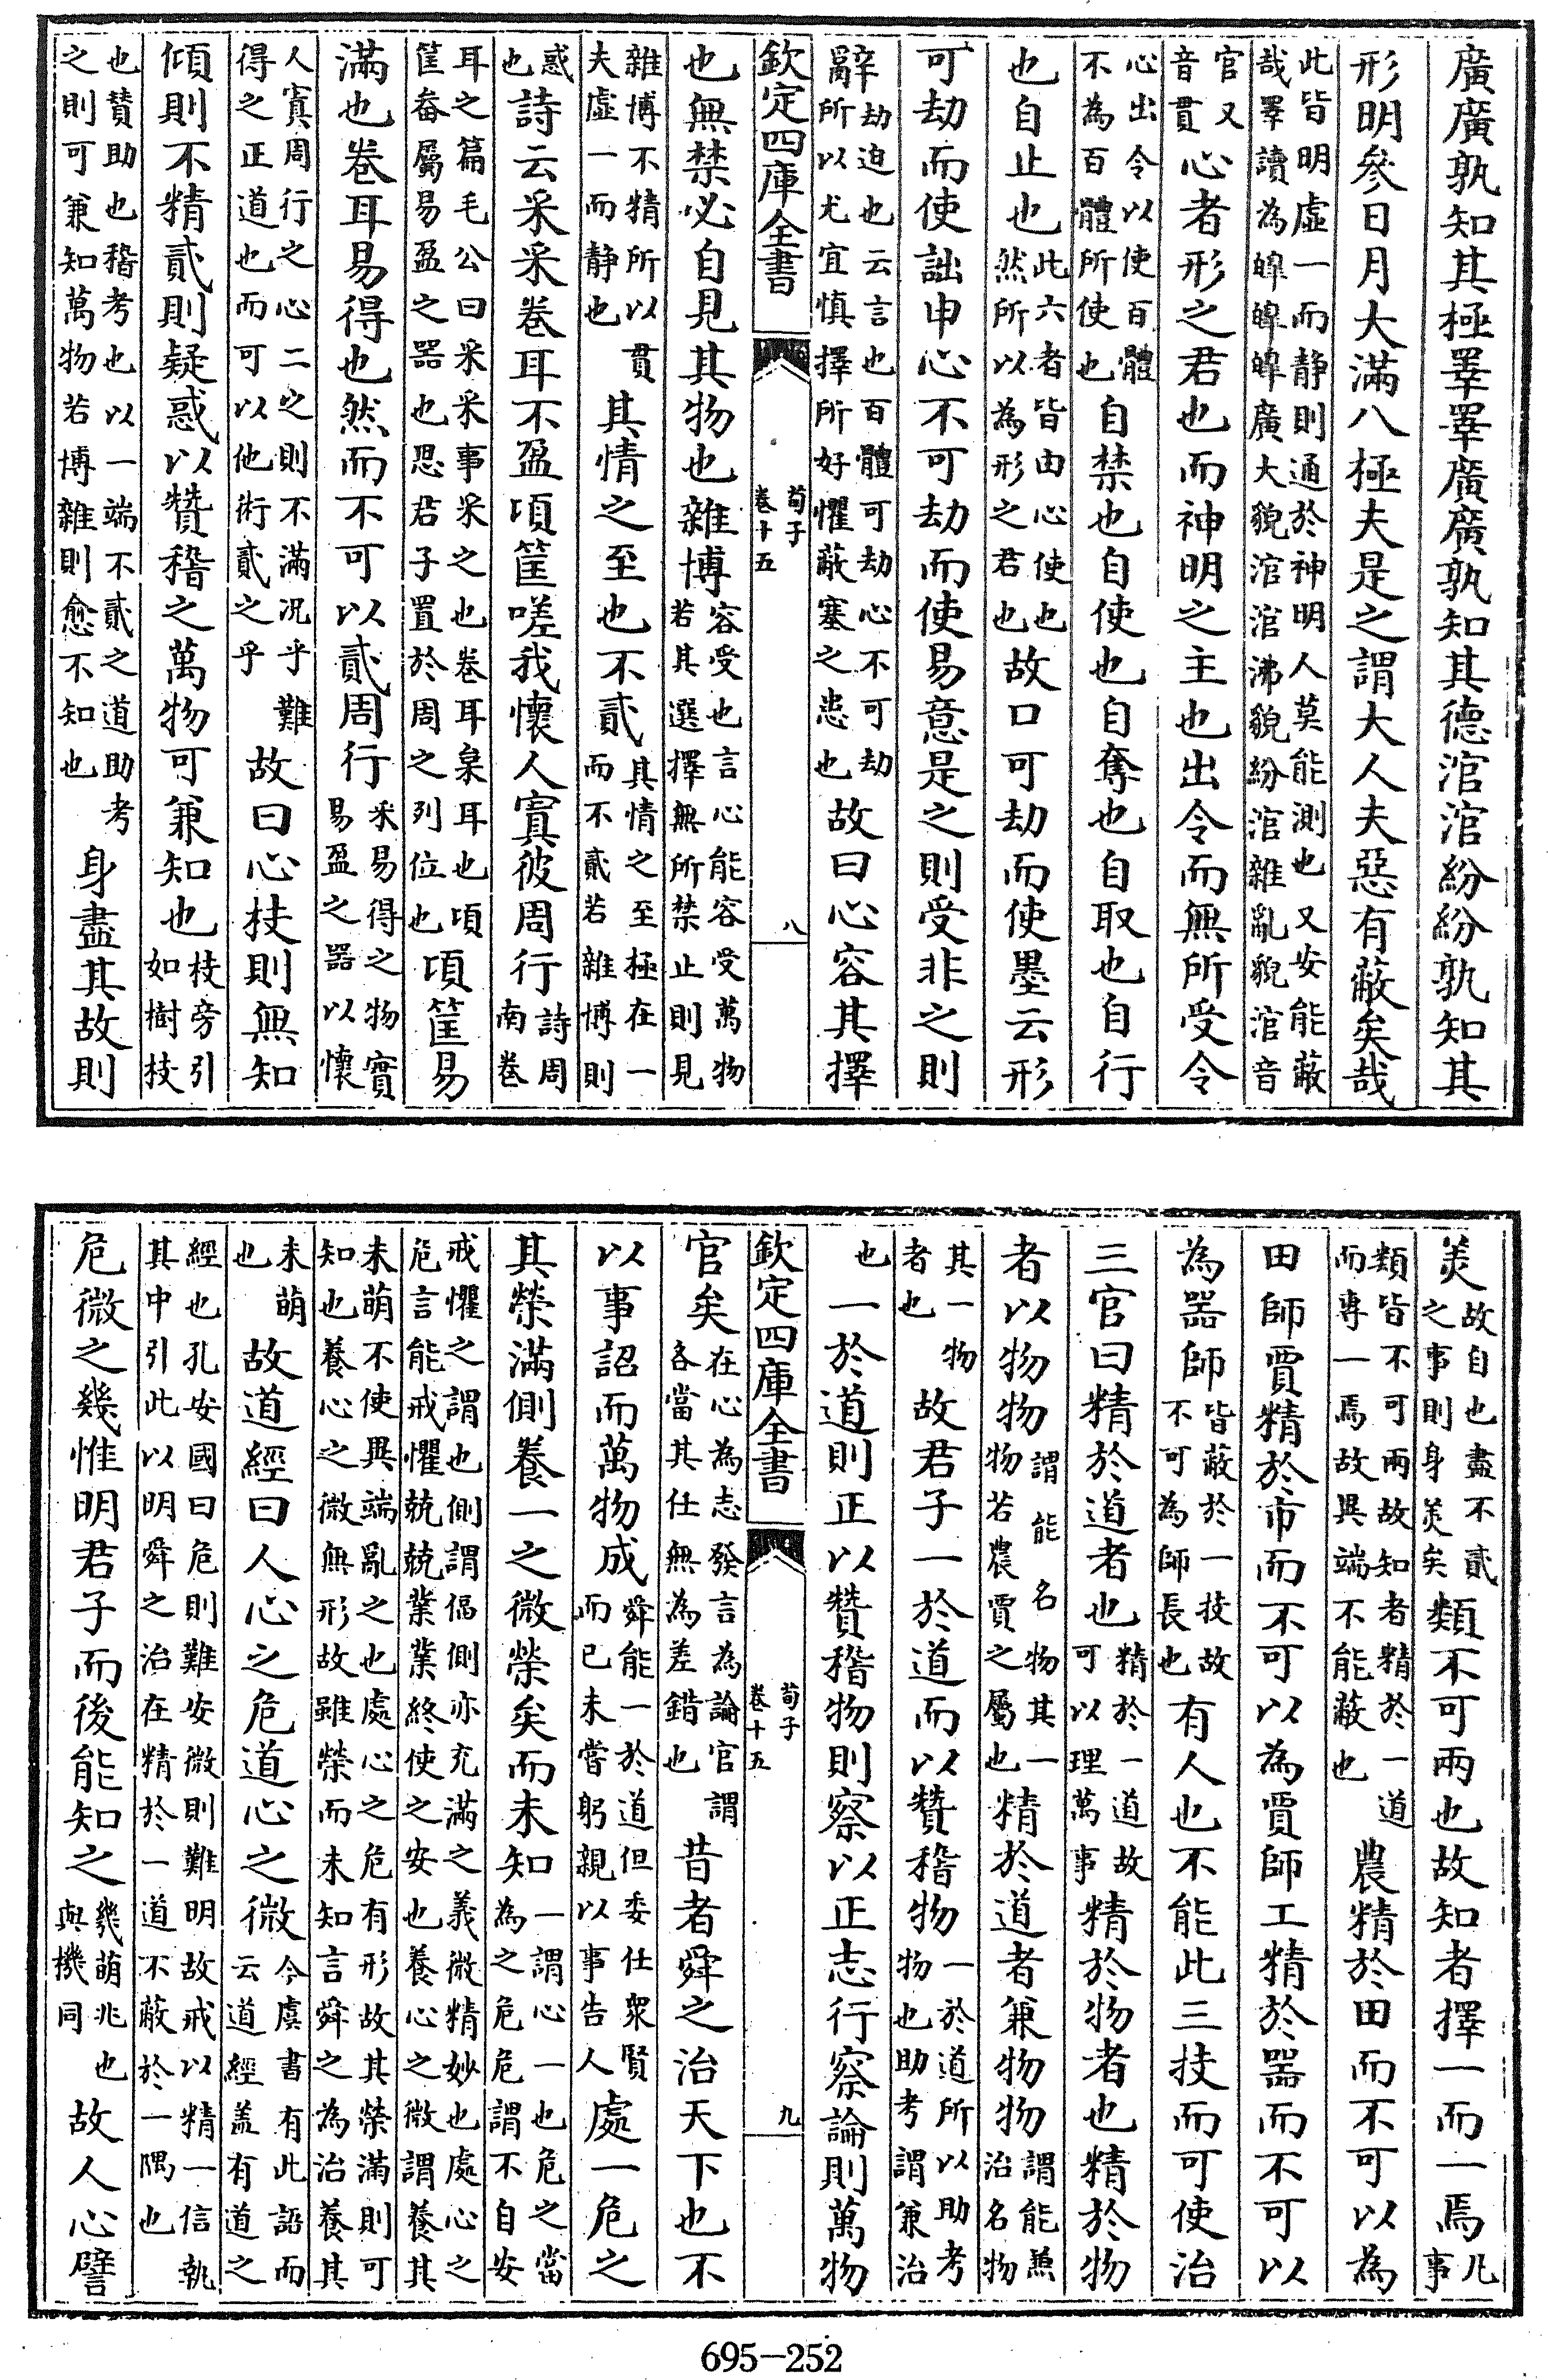 廣廣孰知其極睪睪廣廣孰知其德涫涫紛紛孰知其
形明參日月大滿八極夫是之謂大人夫惡有蔽矣哉
此皆明虛一而静則通於神明人莫能測也又安能蔽
哉睪讀為皥皥皥廣大貌涫涫沸貌紛涫雜亂貌涫音
官又音貫心者形之君也而神明之主也出令而無所受令
心出令以使百體不為百體所使也自禁也自使也自奪也自取也自行
也自止也此六者皆由心使也然所以為形之君也故口可劫而使墨云形
可劫而使詘申心不可劫而使易意是之則受非之則
辭劫迫也云言也百體可劫心不可劫所以尤宜慎擇所好懼蔽塞之患也故曰心容其擇
欽定四庫全書
荀子
卷十五
八
也無禁必自見其物也雜博容受也言心能容受萬物若其選擇無所禁止則見
雜博不精所以貫夫虛一而静也其情之至也不貳其情之至極在一而不貳若雜博則
惑也詩云采采卷耳不盈頃筐嗟我懷人寘彼周行詩周南卷
耳之篇毛公曰采采事采之也卷耳枲耳也頃筐畚屬易盈之器也思君子置於周之列位也頃筐易
滿也卷耳易得也然而不可以貳周行采易得之物實易盈之器以懷
人寘周行之心二之則不滿况乎難得之正道也而可以他術貳之乎故曰心枝則無知
傾則不精貳則疑惑以贊稽之萬物可兼知也枝旁引如樹枝
也贊助也稽考也以一端不貳之道助考之則可兼知萬物若博雜則愈不知也身盡其故則
美故自也盡不貳之事則身美矣類不可兩也故知者擇一而一焉凡事
類皆不可兩故知者精於一道而專一焉故異端不能蔽也農精於田而不可以為
田師賈精於市而不可以為賈師工精於器而不可以
為器師皆蔽於一技故不可為師長也有人也不能此三技而可使治
三官曰精於道者也精於一道故可以理萬事精於物者也精於物
者以物物謂能名物其一物若農賈之屬也精於道者兼物物謂能兼治名物
其一物者也故君子一於道而以贊稽物一於道所以助考物也助考謂兼治
也一於道則正以贊稽物則察以正志行察論則萬物
欽定四庫全書
荀子
卷十五
九
官矣在心為志發言為論官謂各當其任無為差錯也昔者舜之治天下也不
以事詔而萬物成舜能一於道但委仕衆賢而已未嘗躬親以事告人處一危之
其榮滿側養一之微榮矣而未知一謂心一也危之當為之危危謂不自安
戒懼之謂也側謂偪側亦充滿之義微精妙也處心之危言能戒懼兢兢業業終使之安也養心之微謂養其
未萌不使異端亂之也處心之危有形故其榮滿則可知也養心之微無形故雖榮而未知言舜之為治養其
未萌也故道經曰人心之危道心之微今虞書有此語而云道經盖有道之
經也孔安國曰危則難安微則難明故戒以精一信執其中引此以明舜之治在精於一道不蔽於一隅也
危微之幾惟明君子而後能知之幾萌兆也與機同故人心譬
695-252